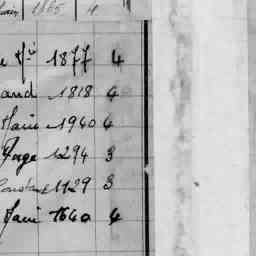 1865 4
1877 4
and 1818 4
Marie 1940 4
Juge 1294 3
Constant 1129 3
1640 4